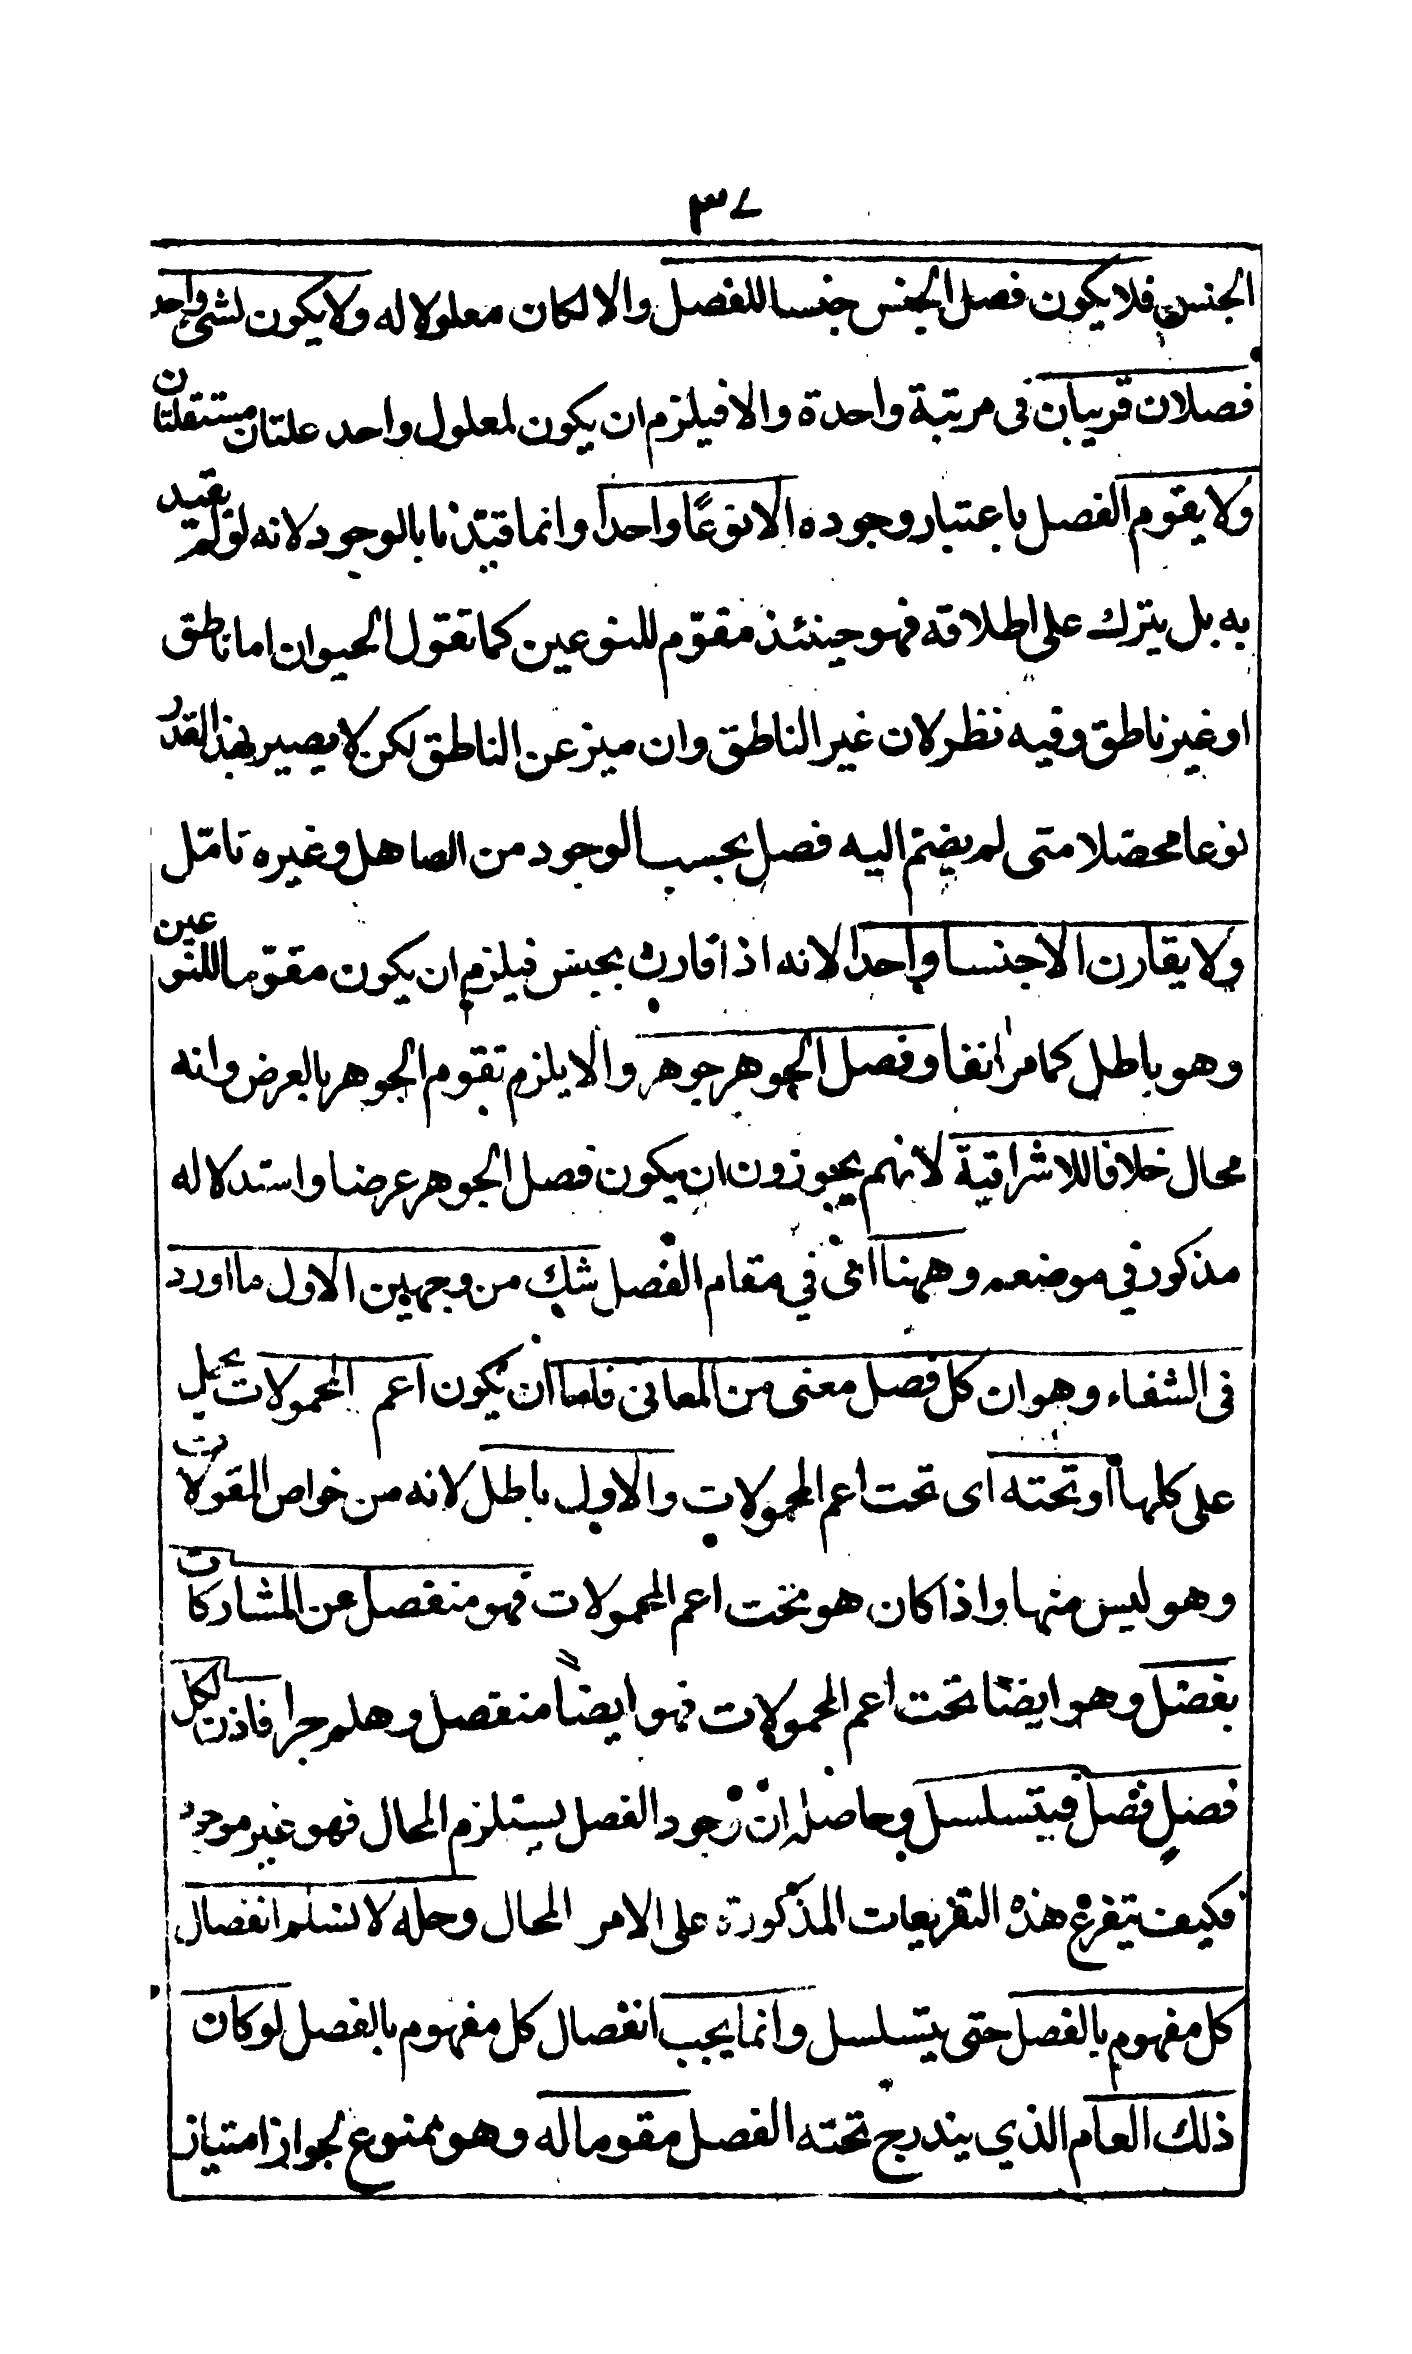 ٣٧
الجنس فلا يكون فصل الجنس جنسا للفصل والا لكان معلولا له ولا يكون لشئ واحد
فصلان قريبان فى مرتبة واحدة والا فيلزم ان يكون لمعلول واحد علتان مستقلتان
ولا يقوم الفصل باعتبار وجوده الا نوعًا واحدا وانما قيّدنا بالوجود لانه لو لم يقيد
به بل يترك على اطلاقه فهو حينئذ مقوّم للنوعين كما تقول الحيوان اما ناطق
او غير ناطق وفيه نظر لان غير الناطق وان ميز عن الناطق لكن لا يصير بهذا القدر
نوعا محصّلا متى لم يضمّ اليه فصل بحسب الوجود من الصاهل وغيره تامّل
ولا يقارن الا جنسا واحدا لانه اذا قارن بجنس فيلزم ان يكون مقوّما للنوعين
وهو باطل كما مر انفا وفصل الجوهر جوهر والا يلزم تقوم الجوهر بالعرض وانه
محال خلافا للاشراقية لانهم يجوزون ان يكون فصل الجوهر عرضا واستدلاله
مذكور في موضعه وههنا اى في مقام الفصل شك من وجهين الاول ما اورد
فى الشفاء وهو ان كل فصل معنى من المعانى فاما ان يكون اعم المحمولات يحمل
على كلها او تحته اى تحت اعم المحمولات والاول باطل لانه من خواص المقولات
وهو ليس منها واذا كان هو تحت اعم المحمولات فهو منفصل عن المشاركات
بفصل وهو ايضًا تحت اعم المحمولات فهو ايضًا منفصل وهلم جرا فاذن لكل
فصل فصل فيتسلسل وحاصله ان وجود الفصل يستلزم المحال فهو غير موجود
فكيف يتفرع هذه التفريعات المذكورة على الامر المحال وحله لا نسلم انفصال
كل مفهوم بالفصل حتى يتسلسل وانما يجب انفصال كل مفهوم بالفصل لو كان
ذلك العام الذي يندرج تحته الفصل مقوما له وهو ممنوع لجواز امتياز